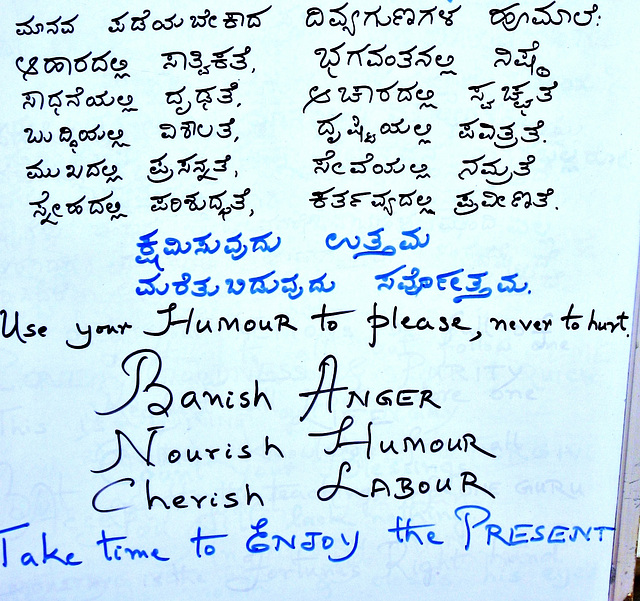 ಮಾನವ ಪಡೆಯಬೇಕಾದ ದಿವ್ಯಗುಣಗಳ ಹೂಮಾಲೆ:
ಆಹಾರದಲ್ಲಿ ಸಾತ್ವಿಕತೆ, ಭಗವಂತನಲ್ಲಿ ನಿಷ್ಠೆ
ಸಾಧನೆಯಲ್ಲಿ ದೃಢತೆ, ಆಚಾರದಲ್ಲಿ ಸ್ವಚ್ಛತೆ
ಬುದ್ಧಿಯಲ್ಲಿ ವಿಶಾಲತೆ, ದೃಷ್ಟಿಯಲ್ಲಿ ಪವಿತ್ರತೆ.
ಮುಖದಲ್ಲಿ ಪ್ರಸನ್ನತೆ, ಸೇವೆಯಲ್ಲಿ ನಮ್ರತೆ
ಸ್ನೇಹದಲ್ಲಿ ಪರಿಶುದ್ಧತೆ, ಕರ್ತವ್ಯದಲ್ಲಿ ಪ್ರವೀಣತೆ.
ಕ್ಷಮಿಸುವುದು ಉತ್ತಮ
ಮರೆತುಬಿಡುವುದು ಸರ್ವೋತ್ತಮ.
Use your HUMOUR to please, never to hurt.
Banish ANGER
Nourish HUMOUR
Cherish LABOUR
Take time to ENJOY the PRESENT